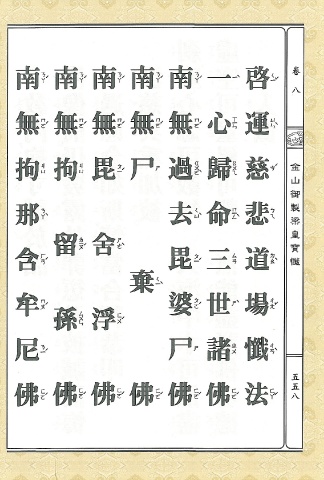 卷八
金山御製梁皇寶懺
五五八
啓運慈悲道場懺法
一心歸命三世諸佛
南無過去毘婆尸佛
南無尸棄佛
南無毘舍浮佛
南無拘留孫佛
南無拘那含牟尼佛